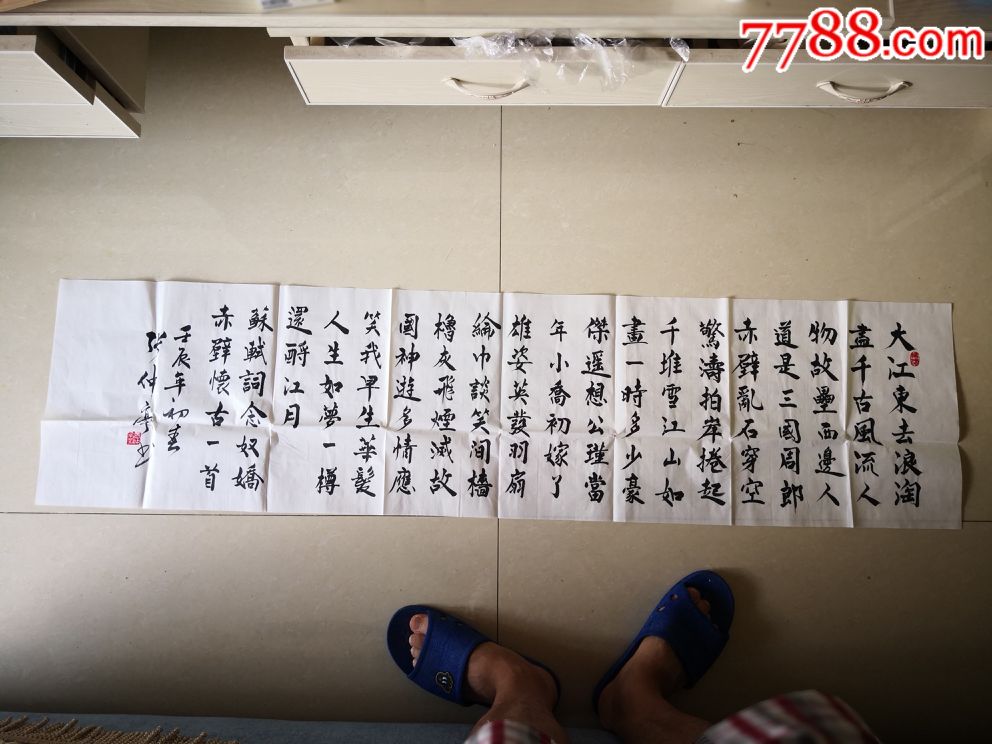 7788.com
大江東去浪淘
盡千古風流人
物故壘西邊人
道是三國周郎
赤壁亂石穿空
驚濤拍岸捲起
千堆雪江山如
畫一時多少豪
傑遥想公瑾當
年小喬初嫁了
雄姿英發羽扇
綸巾談笑間檣
櫓灰飛煙滅故
國神遊多情應
笑我早生華髮
人生如夢一樽
還酹江月
蘇軾詞念奴嬌
赤壁懷古一首
壬辰年初春
张仲亭书